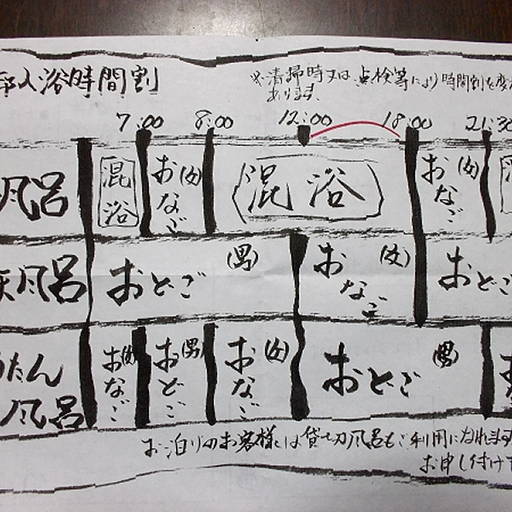 入浴時間割
※清掃時又は点検等により時間割を変
あります。
7:00 8:00 12:00 18:00 21:30
風呂 混浴 おなご(女) 混浴 おなご(女)
風呂 おとこ(男) おなご(女) おとこ
おなご(女) おとこ(男) おなご(女) おとこ(男)
たん
風呂
お泊りのお客様は貸切風呂もご利用になれます
お申し付け